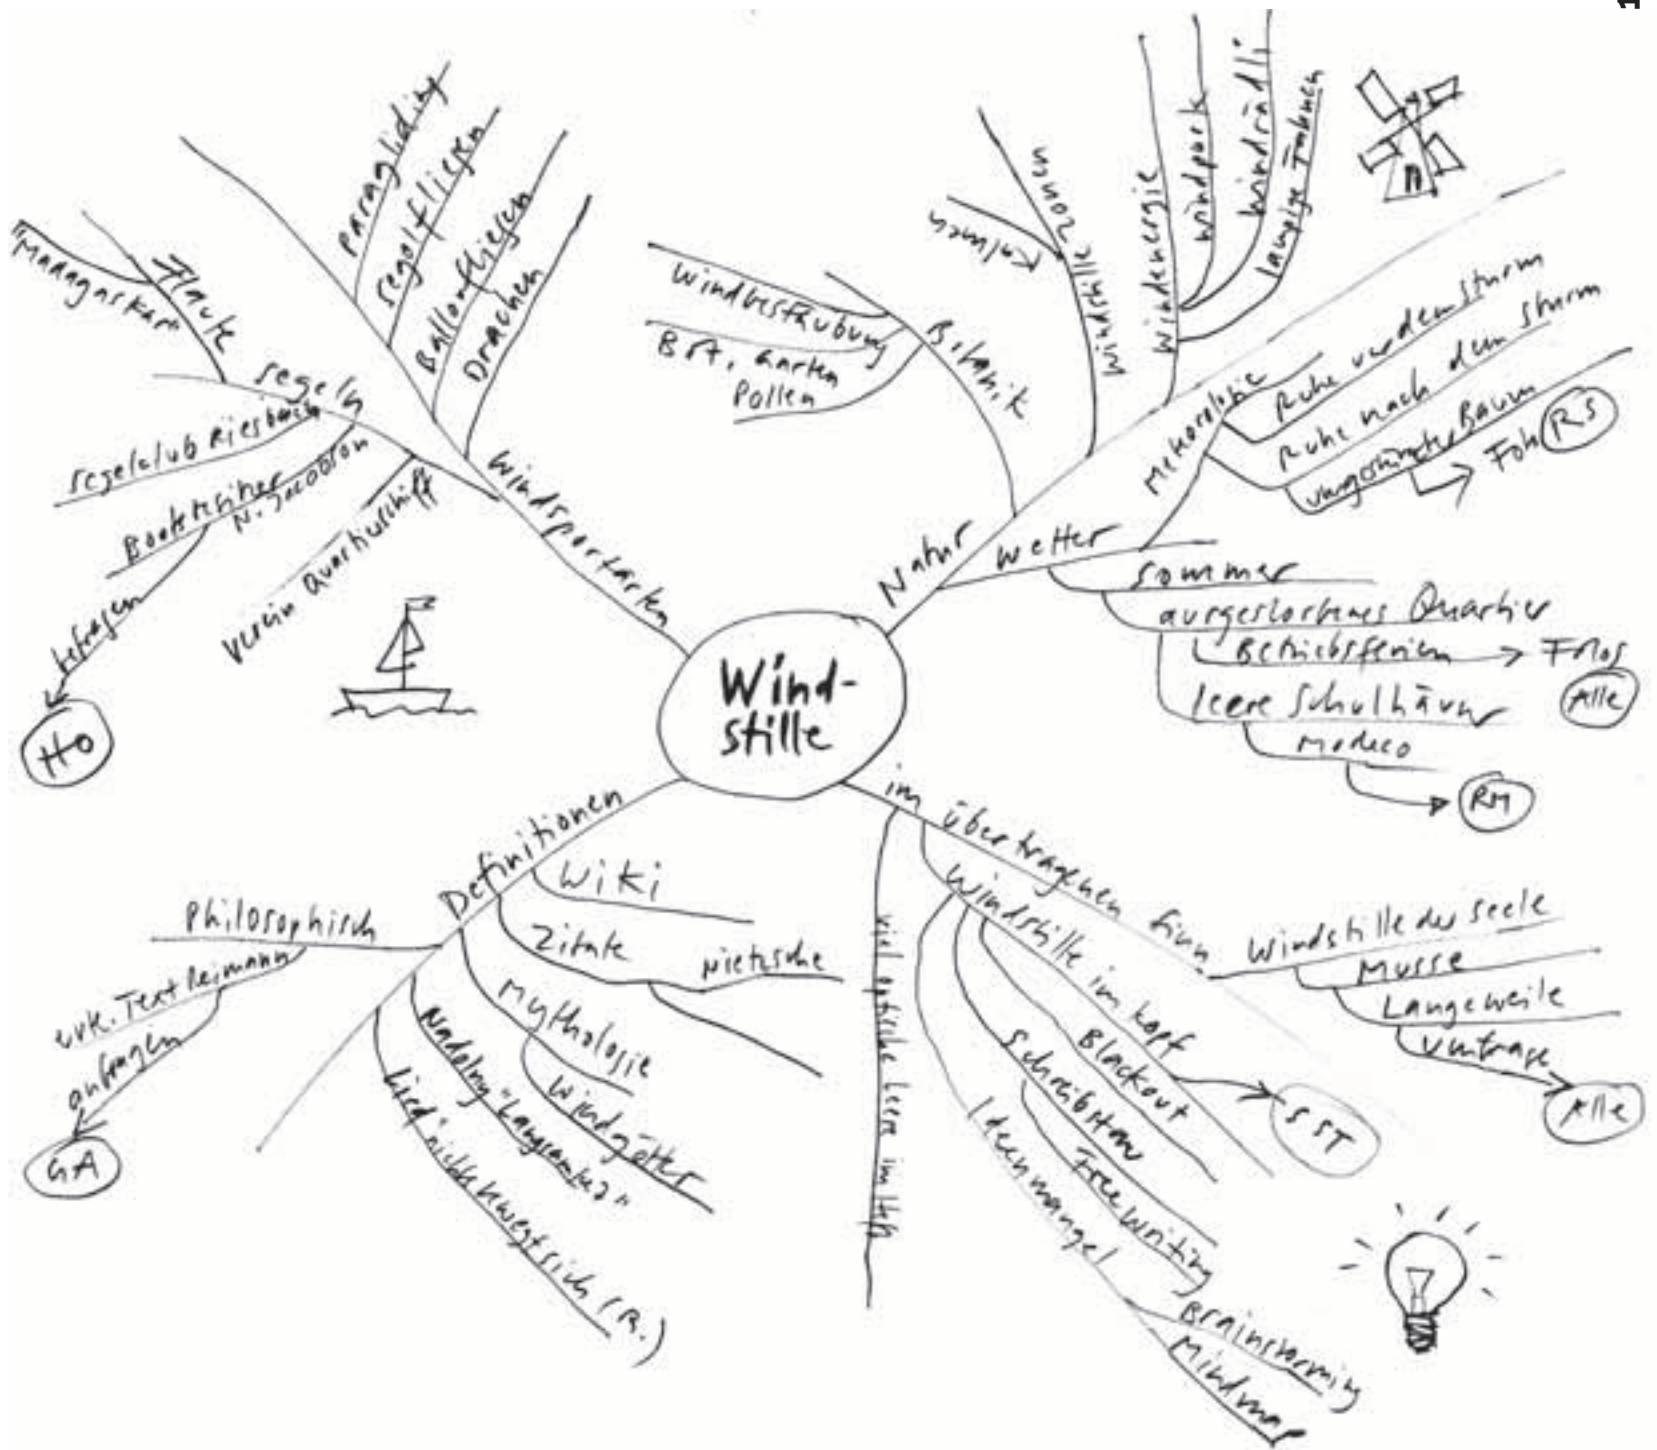 1
Wind-
stille
Windsportarten
Paragliding
Segelfliegen
Ballonfliegen
Drachen
segeln
Flaute
"Madagaskar"
Segelclub Riesbach
Bootsbesitzer
N. Jacobson
befragen
HO
Verein Quartierschiff
Natur
Botanik
Windbestäubung
Bot. Garten
Pollen
Windstille Zonen
Kalmen
Windenergie
Windpark
Windrädli
lampige Fahnen
Wetter
Meteorologie
Ruhe vor dem Sturm
Ruhe nach dem Sturm
umgestürzter Baum
RS
Sommer
ausgestorbenes Quartier
Betriebsferien
Fotos
Alle
leere Schulhäuser
Modeco
RM
im übertragenen Sinn
Windstille der Seele
Musse
Langeweile
Umfrage
Alle
Windstille im Kopf
SST
Blackout
Schreibstau
Free Writing
Ideenmangel
Brainstorming
Mindmap
viel optische Leere im Heft
Definitionen
Wiki
Zitate
Nietzsche
Mythologie
Windgötter
Nadolny "Langsamkeit"
Lied "nichts bewegt sich (R.)
Philosophisch
evt. Text Reimann
anfragen
GA